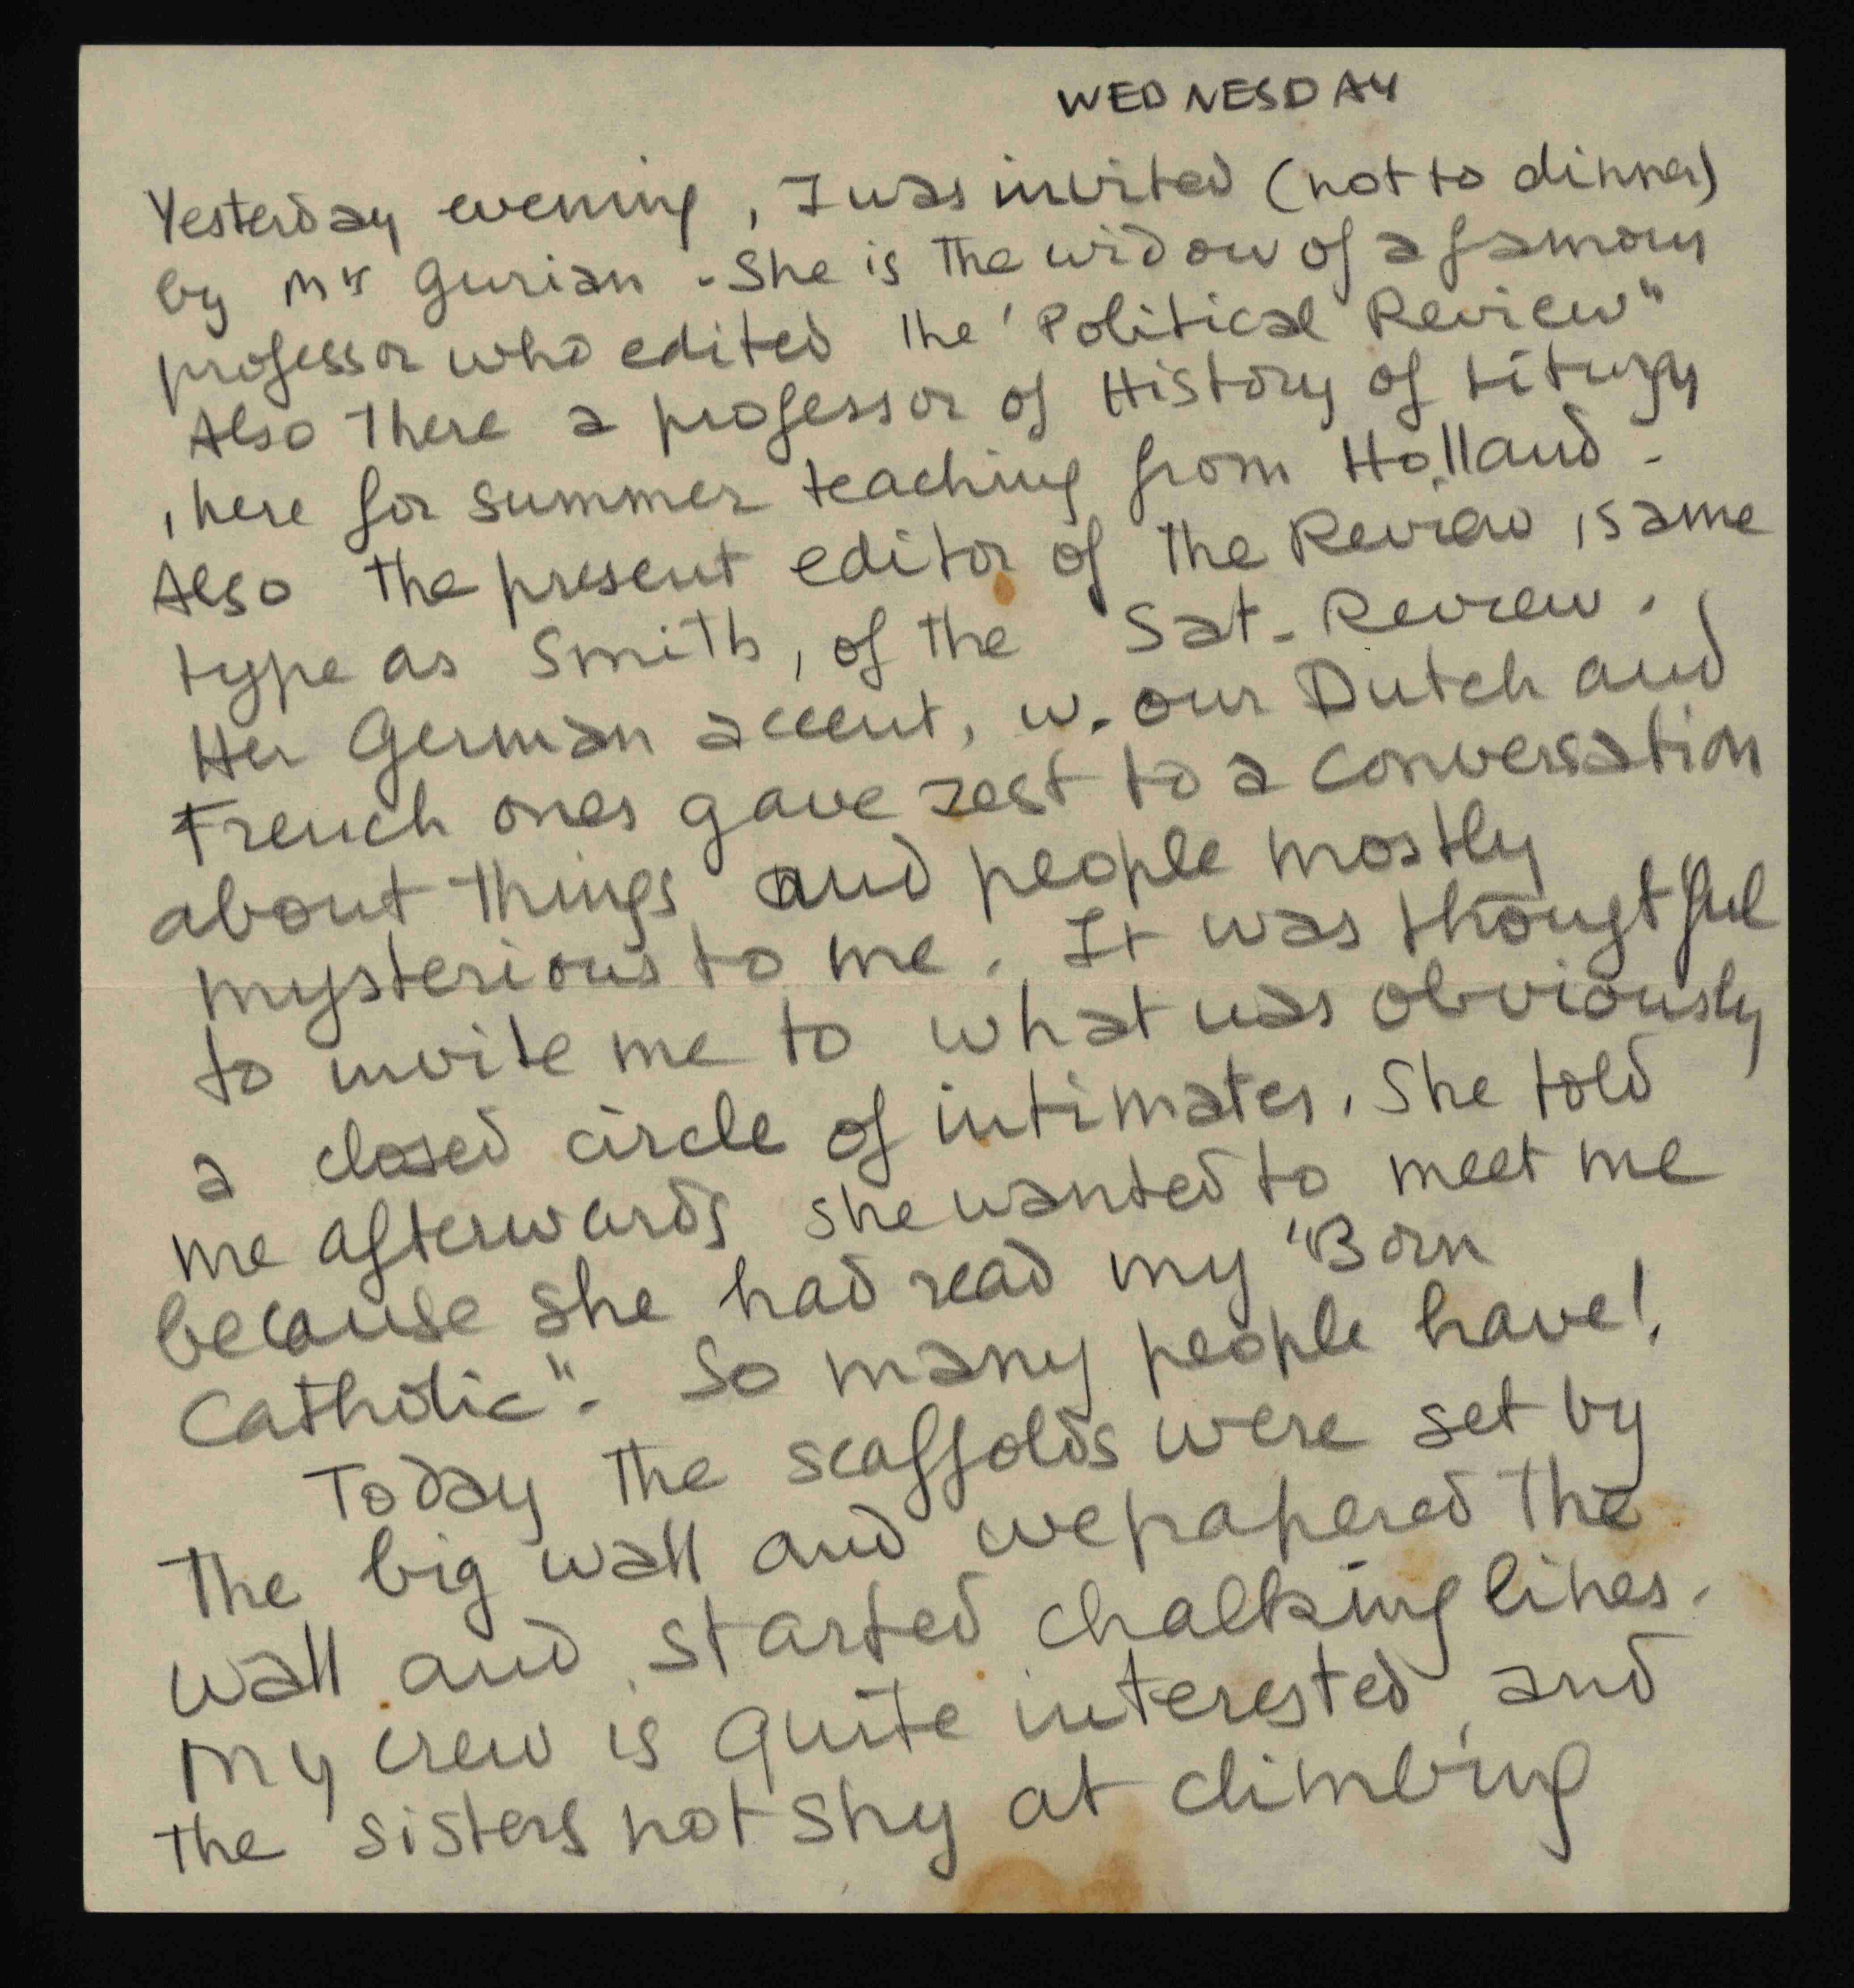 WEDNESDAY
Yesterday evening, I was invited (not to dinner)
by Mrs Gurian - She is the widow of a famous
professor who edited the 'Political Review"
Also There a professor of History of Liturgy
, here for summer teaching from Holland -
Also the present editor of the Review, same
type as Smith, of the Sat. Review.
Her German accent, w. our Dutch and
French ones gave zest to a conversation
about things and people mostly
mysterious to me. It was thougtful
to invite me to what was obviously
a closed circle of intimates. She told
me afterwards she wanted to meet me
because she had read my "Born
Catholic". So many people have!
Today the scaffolds were set by
the big wall and we papered the
wall and started chalking lines.
My crew is quite interested, and
the sisters not shy at climbing